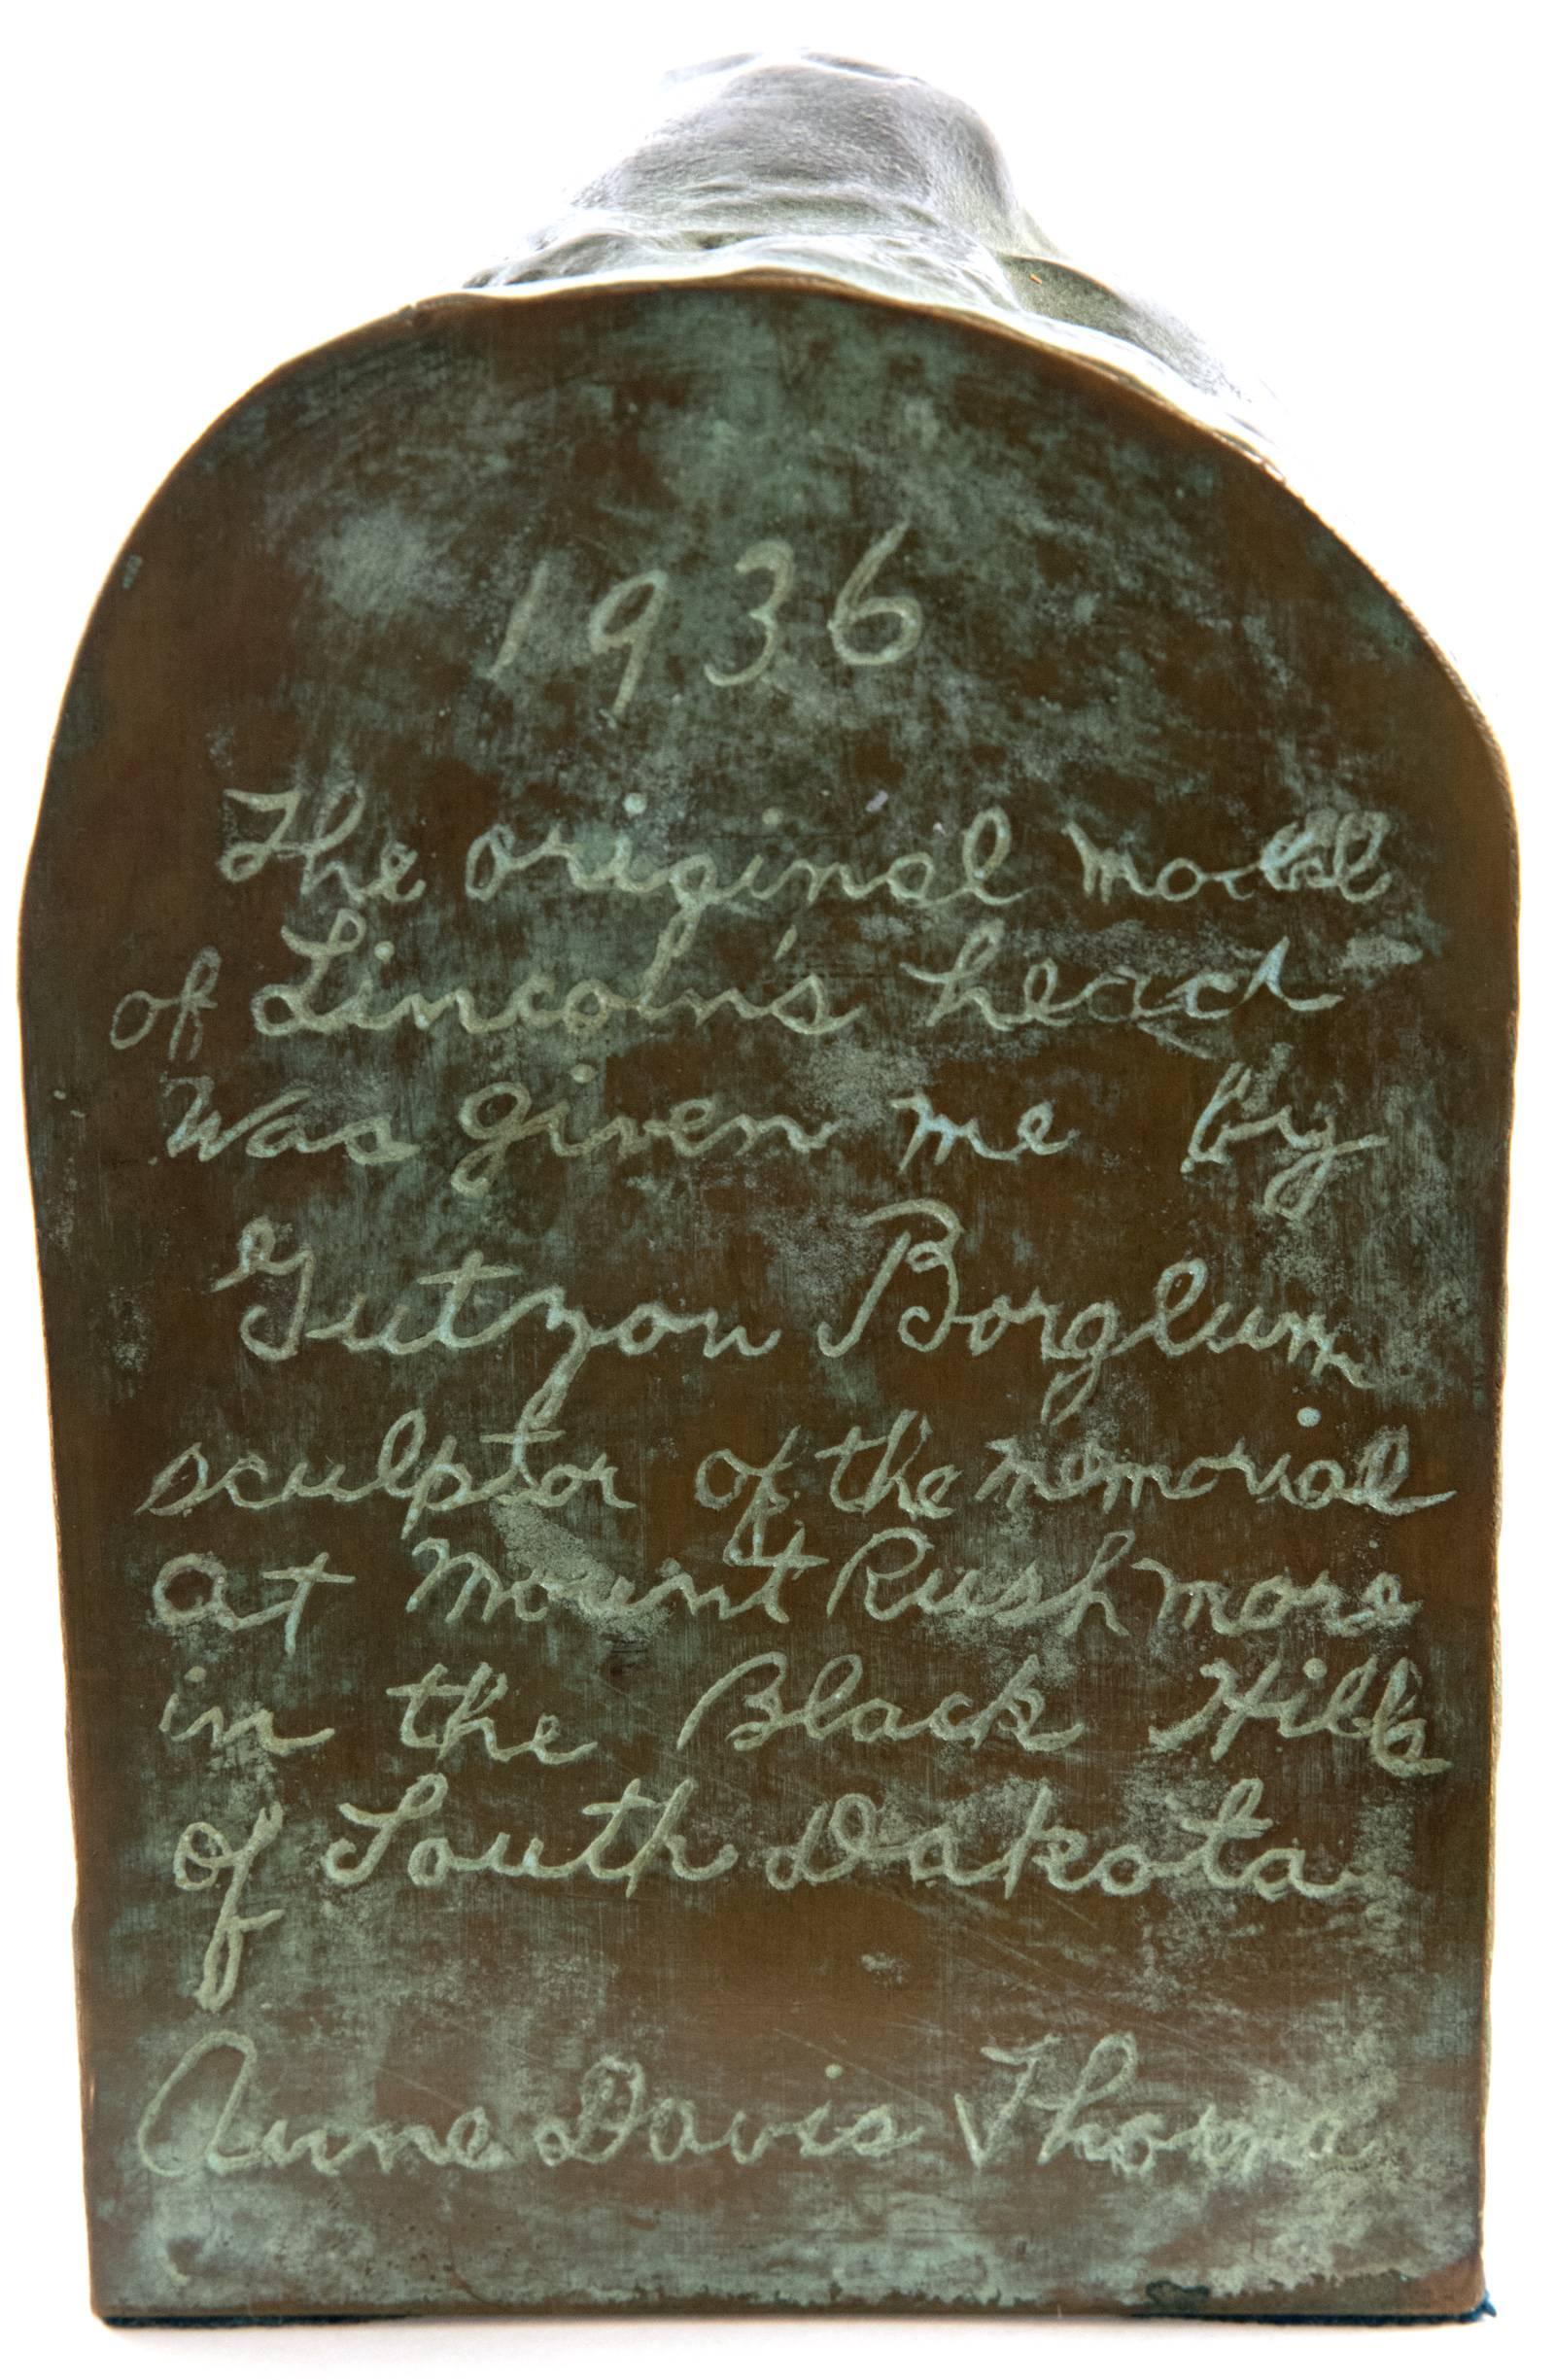 1936
The original model
of Lincoln's head
was given me by
Gutzon Borglum
sculptor of the memorial
at Mount Rushmore
in the Black Hills
of South Dakota
Anne Davis Thorne